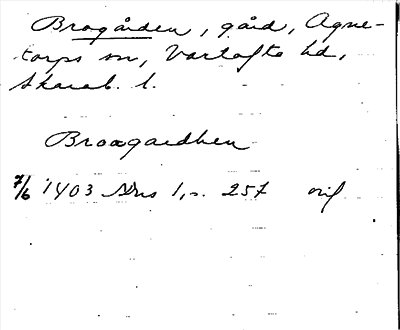 Brogården, gård, Agne-
torps sn, Vartofta hd,
Skarab. l.
Broagardhen
7/6 1403 SDns 1, s. 257 orig